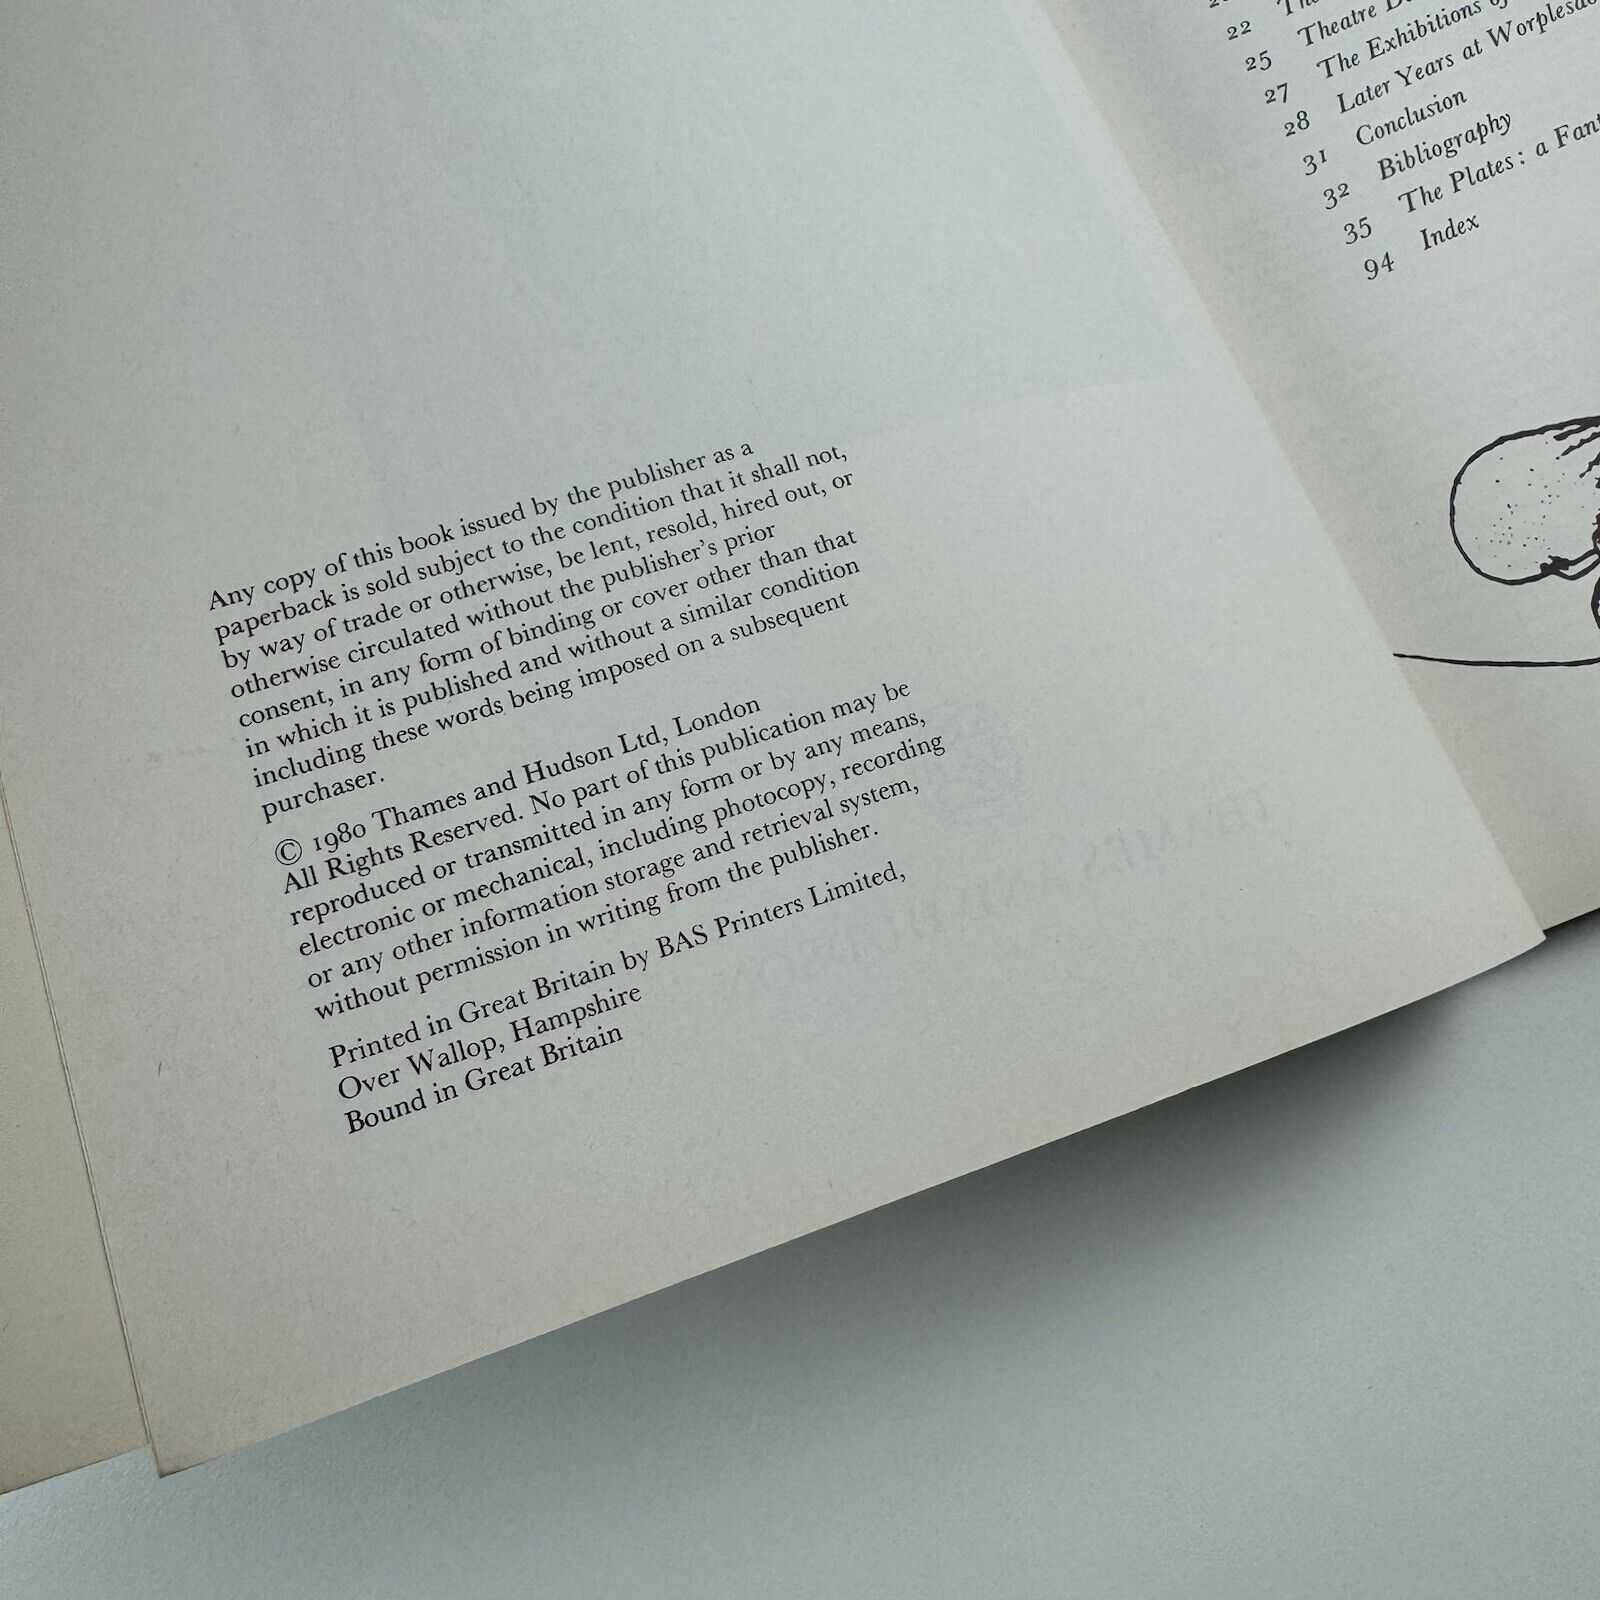 Any copy of this book issued by the publisher as a
paperback is sold subject to the condition that it shall not,
by way of trade or otherwise, be lent, resold, hired out, or
otherwise circulated without the publisher's prior
consent, in any form of binding or cover other than that
in which it is published and without a similar condition
including these words being imposed on a subsequent
purchaser.
© 1980 Thames and Hudson Ltd, London
All Rights Reserved. No part of this publication may be
reproduced or transmitted in any form or by any means,
electronic or mechanical, including photocopy, recording
or any other information storage and retrieval system,
without permission in writing from the publisher.
Printed in Great Britain by BAS Printers Limited,
Over Wallop, Hampshire
Bound in Great Britain
22 The
25 Theatre
27 The Exhibitions
28 Later Years at
31 Conclusion
32 Bibliography
35 The Plates: a
94 Index